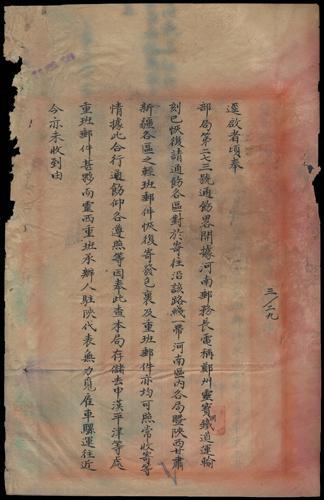 逕啟者頃奉
部局第二七三號通飭畧開據河南郵務長電稱鄭州靈寶鐵道運輸
刻已恢復請通飭各區對於寄往沿該路綫一帶河南區內各局暨陝西甘肅
新疆各區之輕班郵件恢復寄發包裹及重班郵件亦均可照常收寄等
情據此合行通飭仰各遵照等因奉此查本局存儲去中漢平津等處
重班郵件甚夥而靈西重班承辦人駐陝代表無力覓雇車騾運往近
今亦未收到由
三/二九